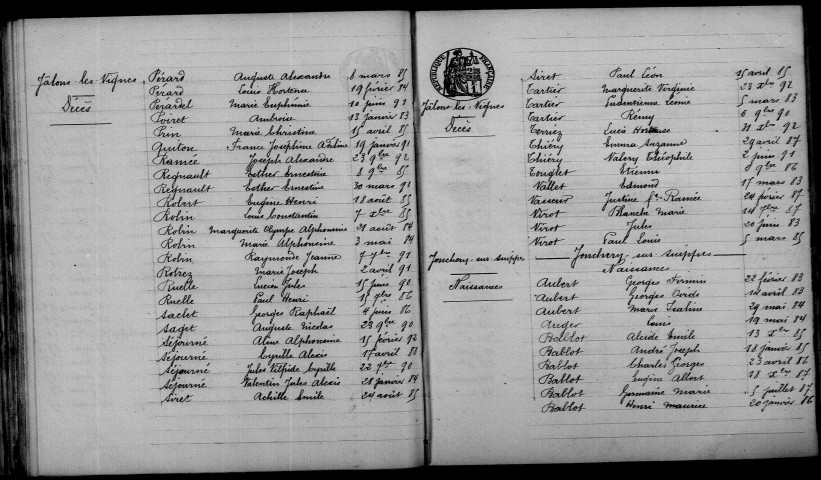 Jâlons-les-Vignes Pérard Auguste Alexandre 8 mars 85
Décès Pérard Louis Hortena 19 février 84
Pérardel Marie Euphémie 10 juin 91
Poiret Ambroise 13 janvier 83
Prin Marie Christine 15 avril 85
Quiton France Joséphine Adeline 19 janvier 91
Ramée Joseph Alexandre 23 9bre 92
Regnault Esther Ernestine 8 9bre 85
Regnault Esther Ernestine 30 mars 90
Robert Eugène Henri 18 août 85
Robin Louis Constantin 7 Xbre 85
Robin Marguerite Olympe Alphonsine 21 août 84
Robin Marie Alphonsine 3 mai 84
Robin Raymonde Jeanne 7 7bre 91
Robrez Marie Joseph 2 avril 91
Ruelle Lucien Jules 15 juin 90
Ruelle Paul Henri 15 9bre 86
Saclet Georges Raphaël 4 juin 86
Saget Auguste Nicolas 23 9bre 90
Séjourné Aline Alphonsine 15 février 92
Séjourné Cyrille Alexis 17 avril 88
Séjourné Jules Elphide Cyrille 22 7bre 90
Séjourné Valentin Jules Alexis 28 janvier 84
Siret Achille Emile 24 août 85
REPUBLIQUE FRANÇAISE
Jâlons-les-Vignes
Décès
Siret Paul Léon 15 avril 85
Tartier Marguerite Virginie 23 Xbre 92
Tartier Pudentienne Léonie 5 mars 83
Tartier Rémy 6 9bre 90
Terriez Lucie Hortense 31 Xbre 92
Thiéry Emma Suzanne 29 avril 87
Thiéry Valery Théophile 2 juin 91
Touglet Etienne 8 9bre 86
Vallet Edmond 17 mars 83
Vasseur Justine Ramée 24 février 87
Virot Blanche Marie 14 7bre 87
Virot Jules 20 juin 83
Virot Paul Louis 5 mars 85
Jonchery-sur-suippes
Jonchery-sur-suippes
Naissances
Naissances
Aubert Georges Firmin 22 février 83
Aubert Georges Ovide 14 avril 83
Aubert Marie 29 mai 84
Auger Louis 19 mai 84
Bablot Alcide Emile 13 Xbre 85
Bablot André Joseph 18 janvier 85
Bablot Charles Georges 23 avril 86
Bablot Eugène Albert 18 Xbre 87
Bablot Germaine Marie 5 juillet 87
Bablot Henri Maurice 20 janvier 86